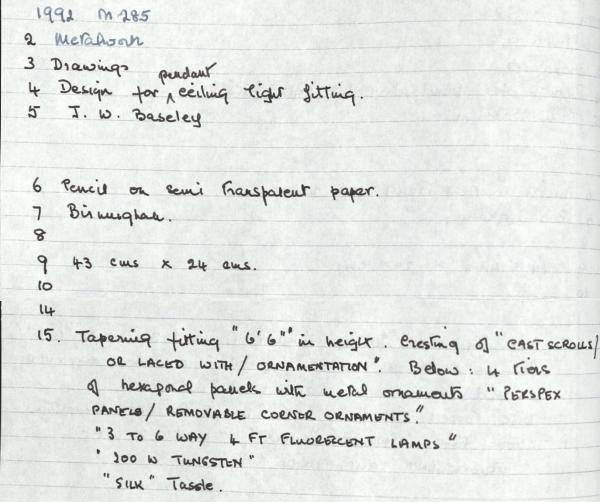 1992 M 285
2 Metalwork
3 Drawings
4 Design for pendant ceiling light fitting.
5 J. W. Baseley
6 Pencil on semi transparent paper.
7 Birmingham.
8
9 43 cms x 24 cms.
10
14
15. Tapering fitting "6' 6"" in height. Cresting of "CAST SCROLLS/
OR LACED WITH / ORNAMENTATION". Below: 4 tiers
of hexagonal panels with metal ornaments "PERSPEX
PANELS / REMOVABLE CORNER ORNAMENTS."
"3 TO 6 WAY 4 FT FLUORESCENT LAMPS"
"200 W TUNGSTEN"
"SILK" Tassle.